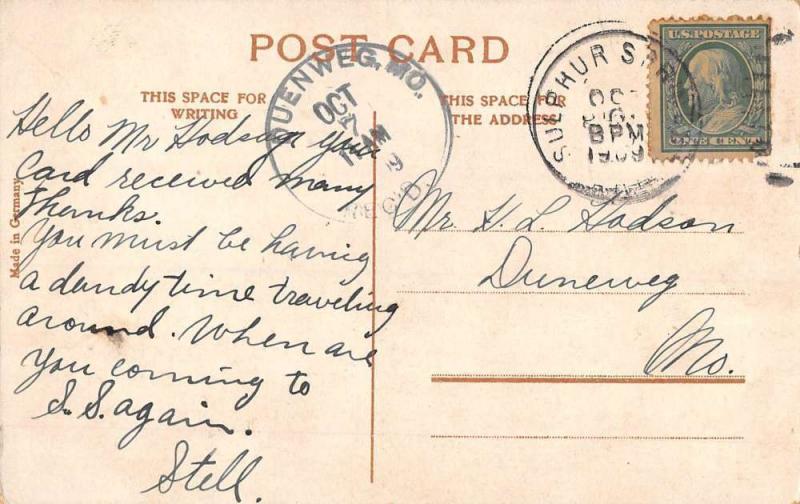 POST CARD
THIS SPACE FOR
WRITING
THIS SPACE FOR
THE ADDRESS
Made in Germany
DUENWEG, MO.
OCT
REC'D.
SULPHUR SPR
OCT
8PM
1909
U.S. POSTAGE
ONE CENT
Hello Mr Hodson your
Card received many
thanks.
You must be having
a dandy time traveling
around. When are
you coming to
S. S. again.
Stell.
Mr. H. L. Hodson
Duneweg
Mo.